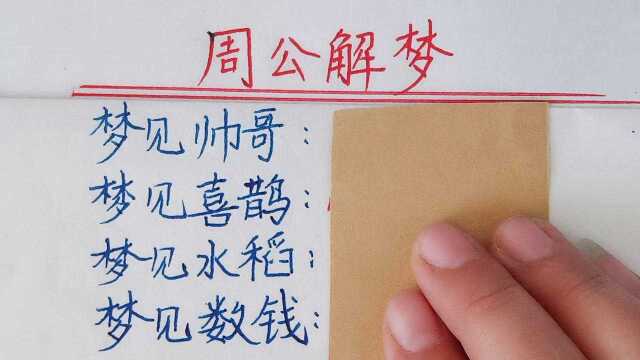 周公解梦
梦见帅哥：
梦见喜鹊：
梦见水稻：
梦见数钱：